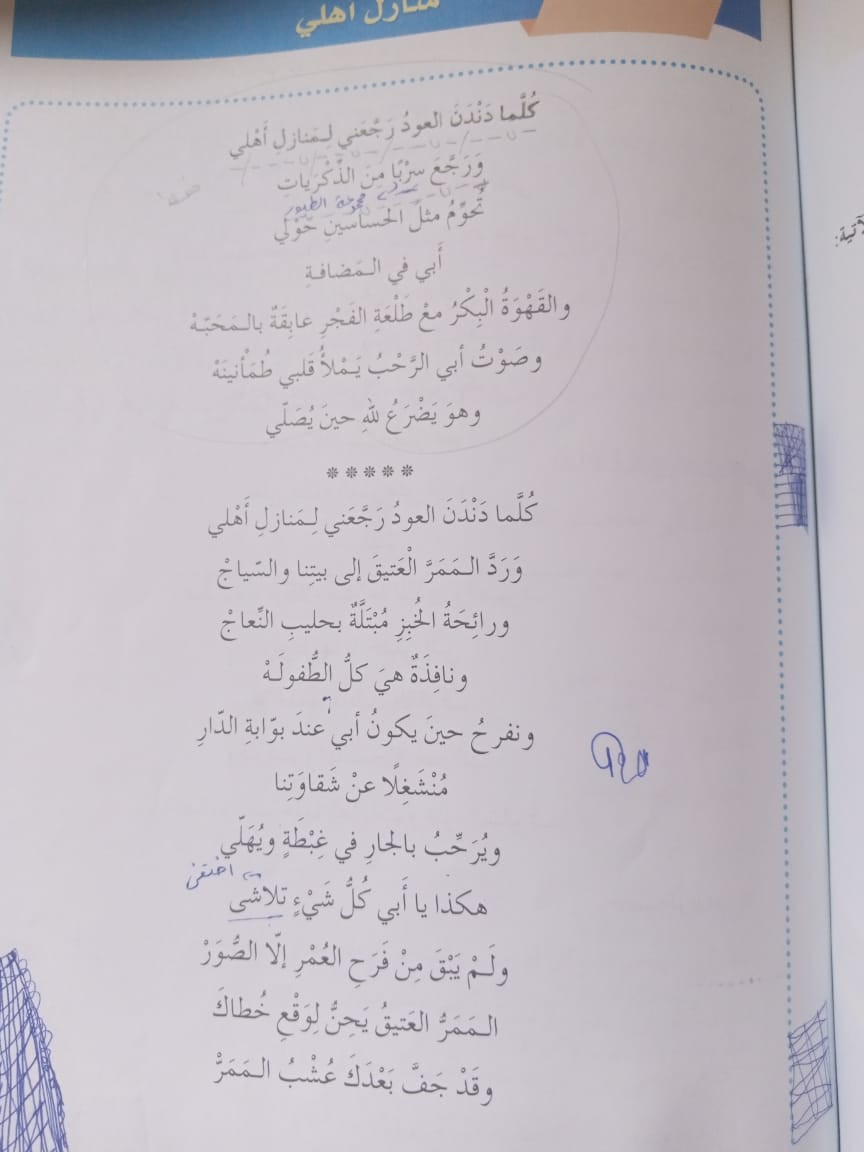 منازل أهلي
كُلَّما دَنْدَنَ العودُ رَجَّعَني لِـمَنازلِ أَهْلي
وَرَجَّعَ سِرْبًا مِنَ الذِّكْرَياتِ
مجموعة الطيور
تُحَوِّمُ مثلَ الحَساسينِ حَوْلي
أَبي في الـمَضافةِ
والقَهْوَةُ الْبِكْرُ معْ طَلْعَةِ الفَجْرِ عابِقَةٌ بالـمَحَبّـهْ
وصَوْتُ أبي الرَّحْبُ يَـمْلأُ قَلبي طُمَأْنينَهْ
وهوَ يَضْرَعُ للهِ حينَ يُصَلّي
*****
كُلَّما دَنْدَنَ العودُ رَجَّعَني لِـمَنازلِ أَهْلي
وَرَدَّ الـمَمَرَّ الْعَتيقَ إلى بيتِنا والسّياجْ
ورائِحَةُ الخُبزِ مُبْتَلَّةٌ بحليبِ النِّعاجْ
ونافِذَةٌ هيَ كلُّ الطُّفولَـهْ
ونفرحُ حينَ يكونُ أبي عندَ بوّابةِ الدّارِ
مُنْشَغِلًا عنْ شَقاوَتِنا
ويُرَحِّبُ بالجارِ في غِبْطَةٍ ويُهَلّي
اختفى
هكذا يا أَبي كُلُّ شَيْءٍ تلاشى
ولَـمْ يَبْقَ مِنْ فَرَحِ العُمْرِ إلّا الصُّوَرْ
الـمَمَرُّ العَتيقُ يَحِنُّ لِوَقْعِ خُطاكَ
وقَدْ جَفَّ بَعْدَكَ عُشْبُ الـمَمَرّْ